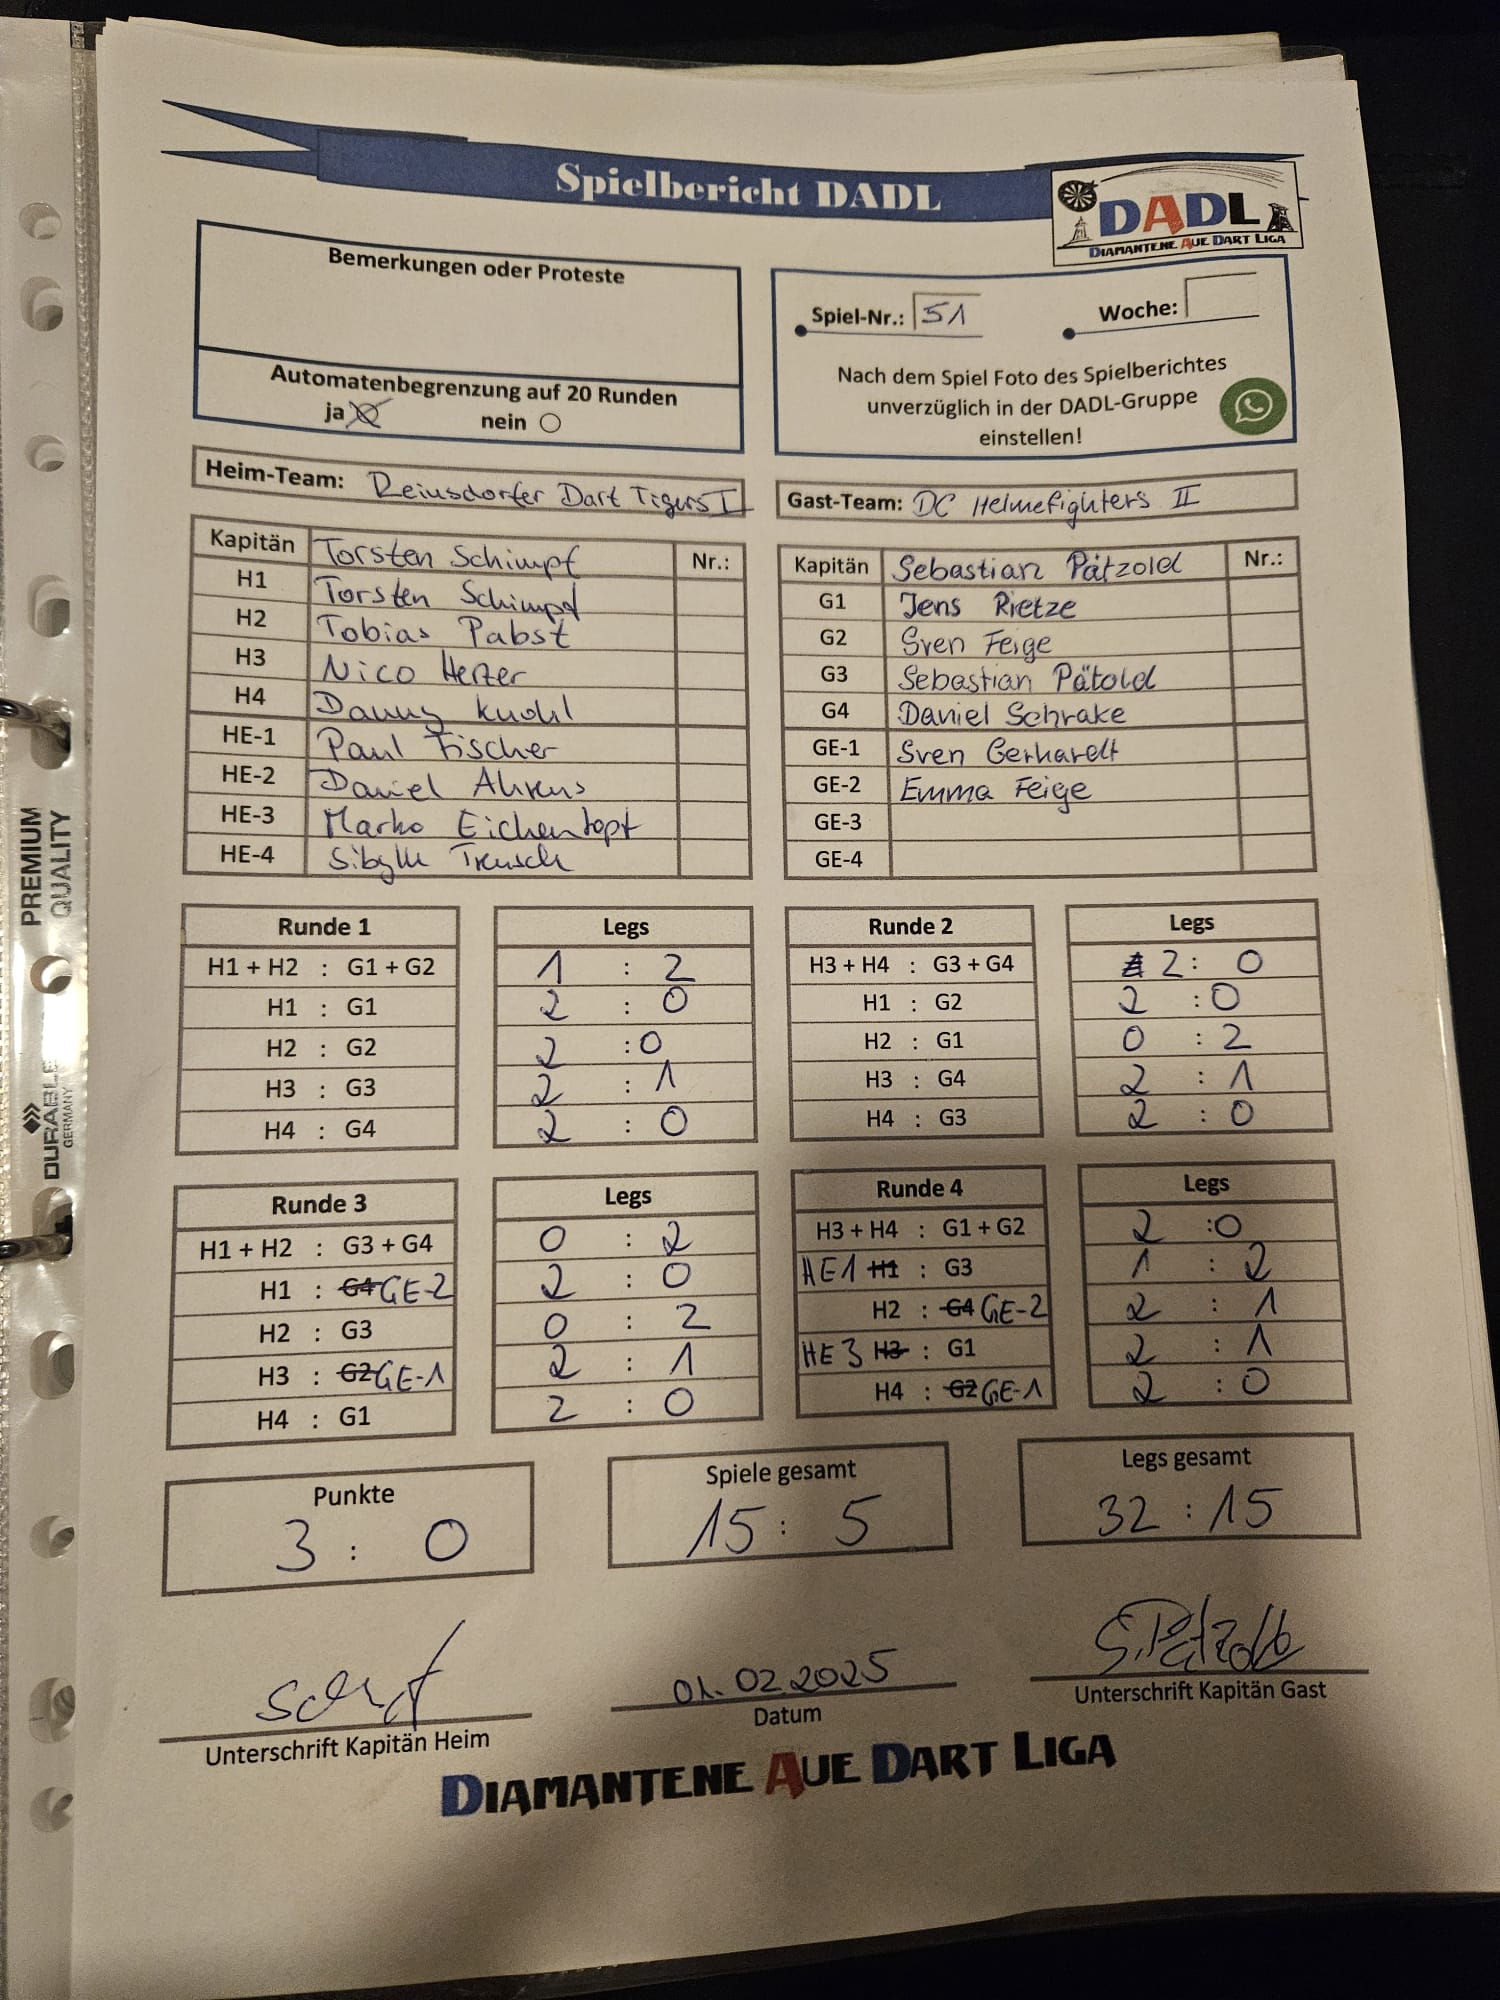 Spielbericht DADL
DADL
DIAMANTENE AUE DART LIGA
Bemerkungen oder Proteste
Automatenbegrenzung auf 20 Runden
ja nein
Spiel-Nr.: 51 Woche:
Nach dem Spiel Foto des Spielberichtes
unverzüglich in der DADL-Gruppe
einstellen!
Heim-Team: Reinsdorfer Dart Tigers I
Gast-Team: DC Helmefighters II
Kapitän Torsten Schimpf Nr.:
H1 Torsten Schimpf
H2 Tobias Pabst
H3 Nico Herzer
H4 Danny Knohl
HE-1 Paul Fischer
HE-2 Daniel Ahrens
HE-3 Marko Eichentopf
HE-4 Sibylle Treusch
Kapitän Sebastian Pätzold Nr.:
G1 Jens Rietze
G2 Sven Feige
G3 Sebastian Pätold
G4 Daniel Schrake
GE-1 Sven Gerhardt
GE-2 Emma Feige
GE-3
GE-4
Runde 1 Legs
H1 + H2 : G1 + G2 1 : 2
H1 : G1 2 : 0
H2 : G2 2 : 0
H3 : G3 2 : 1
H4 : G4 2 : 0
Runde 2 Legs
H3 + H4 : G3 + G4 2 : 0
H1 : G2 2 : 0
H2 : G1 0 : 2
H3 : G4 2 : 1
H4 : G3 2 : 0
Runde 3 Legs
H1 + H2 : G3 + G4 0 : 2
H1 : G4 GE-2 2 : 0
H2 : G3 0 : 2
H3 : G2 GE-1 2 : 1
H4 : G1 2 : 0
Runde 4 Legs
H3 + H4 : G1 + G2 2 : 0
HE1 H1 : G3 1 : 2
H2 : G4 GE-2 2 : 1
HE3 H3 : G1 2 : 1
H4 : G2 GE-1 2 : 0
Punkte
3 : 0
Spiele gesamt
15 : 5
Legs gesamt
32 : 15
Unterschrift Kapitän Heim
01.02.2025
Datum
S. Pätzold
Unterschrift Kapitän Gast
DIAMANTENE AUE DART LIGA
PREMIUM
QUALITY
DURABLE
GERMANY